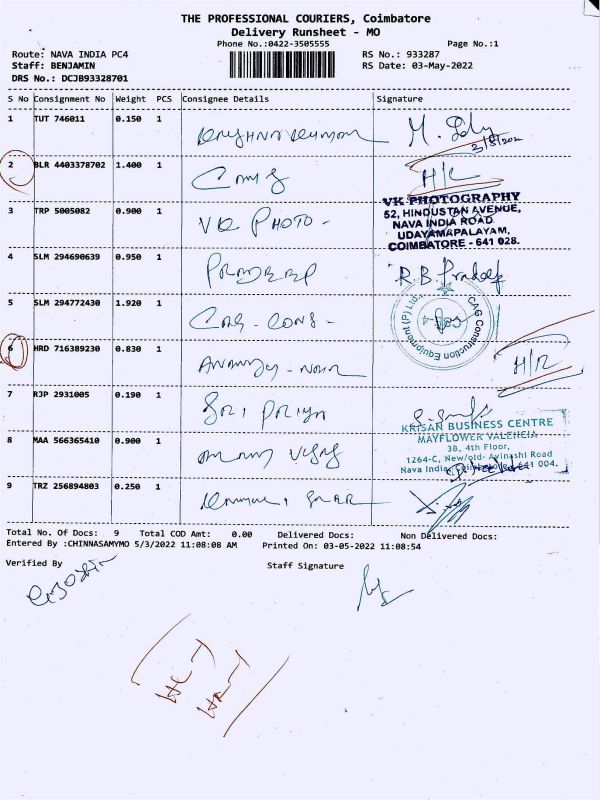 THE PROFESSIONAL COURIERS, Coimbatore
Delivery Runsheet - MO
Phone No.:0422-3505555 Page No.:1
Route: NAVA INDIA PC4 RS No.: 933287
Staff: BENJAMIN RS Date: 03-May-2022
DRS No.: DCJB93328701
S No Consignment No Weight PCS Consignee Details Signature
1 TUT 746011 0.150 1
2 BLR 4403378702 1.400 1 H/R
VK PHOTOGRAPHY
3 TRP 5005082 0.900 1 VK PHOTO -
52, HINDUSTAN AVENUE,
NAVA INDIA ROAD
UDAYAMAPALAYAM,
COIMBATORE - 641 028.
4 SLM 294690639 0.950 1 PRADEEP R.B. Pradeep
5 SLM 294772430 1.920 1 CAG - CONS -
CAG Construction Equipment (P) Ltd.
6 HRD 716389230 0.830 1 H/R
7 RJP 2931005 0.190 1 SRI PRIYA
KRISAN BUSINESS CENTRE
MAYFLOWER VALENCIA
8 MAA 566365410 0.900 1
3B, 4th Floor,
1264-C, New/old- Avinashi Road
Nava India, 641 004.
9 TRZ 256894803 0.250 1
Total No. Of Docs: 9 Total COD Amt: 0.00 Delivered Docs: Non Delivered Docs:
Entered By :CHINNASAMYMO 5/3/2022 11:08:08 AM Printed On: 03-05-2022 11:08:54
Verified By Staff Signature